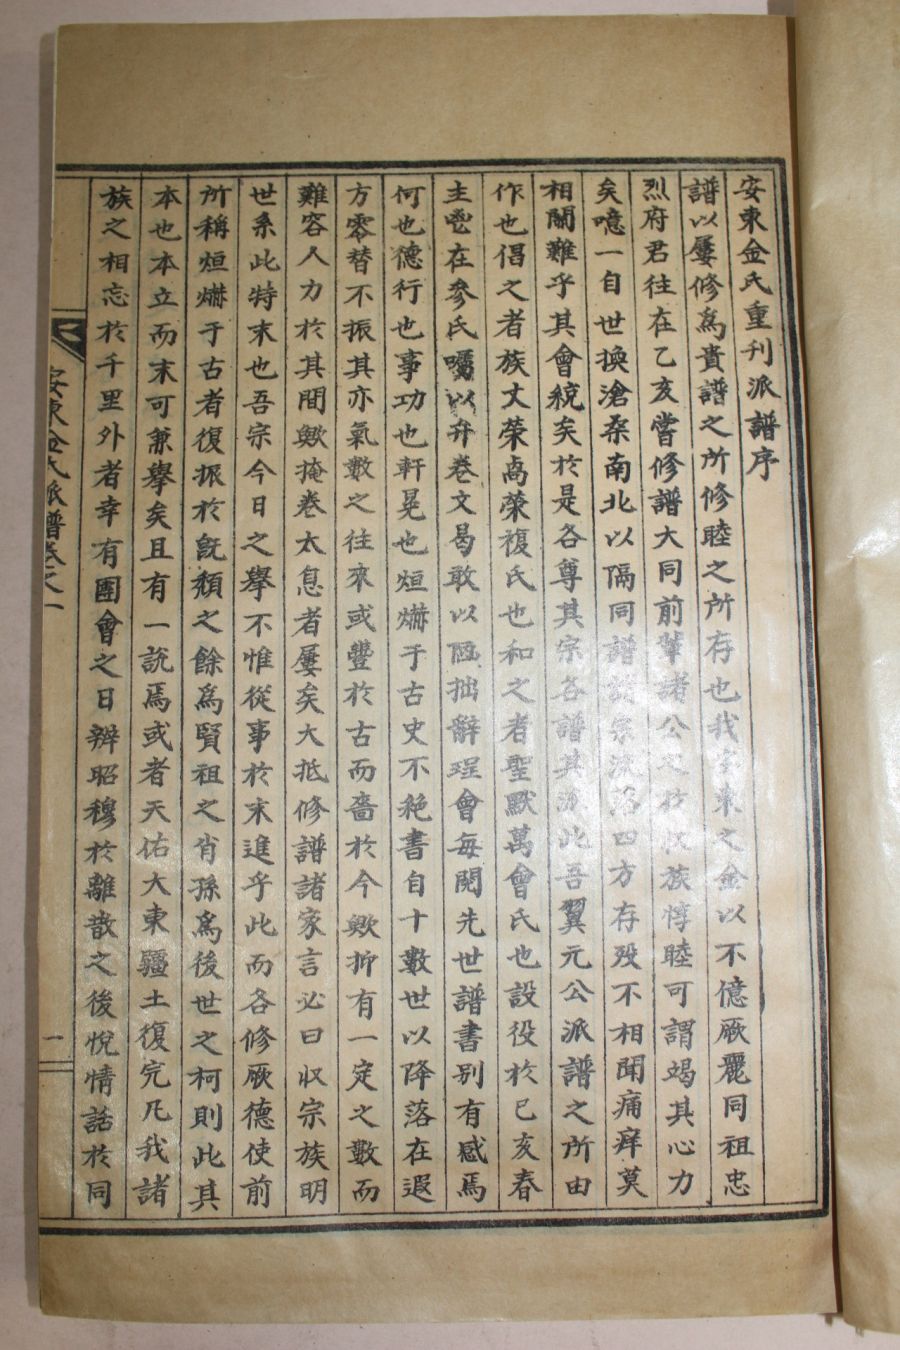 安東金氏重刋派譜序
譜以屢修爲貴譜之所修睦之所存也我安東之金以不億厥麗同祖忠
烈府君往在乙亥嘗修譜大同前輩諸公之於收族惇睦可謂竭其心力
矣噫一自世換滄桒南北以隔同譜諸宗流落四方存歿不相聞痛痒莫
相關難乎其會統矣於是各尊其宗各譜其派此吾翼元公派譜之所由
作也倡之者族丈荣卨榮複氏也和之者聖默萬會氏也設役於己亥春
主鬯在參氏囑以弁卷文曷敢以陋拙辭珵會每閱先世譜書别有感焉
何也德行也事功也軒冕也烜爀于古史不絶書自十數世以降落在遐
方零替不振其亦氣數之往來或豐於古而嗇於今歟抑有一定之數而
難容人力於其間歟掩卷太息者屢矣大抵修譜諸家言必曰收宗族明
世系此特末也吾宗今日之擧不惟從事於末進乎此而各修厥德使前
所稱烜爀于古者復振於旣頹之餘爲賢祖之肖孫爲後世之柯則此其
本也本立而末可兼擧矣且有一說焉或者天佑大東疆土復完凡我諸
族之相忘於千里外者幸有團會之日辨昭穆於離散之後悅情話於同
安東金氏派譜卷之一
一